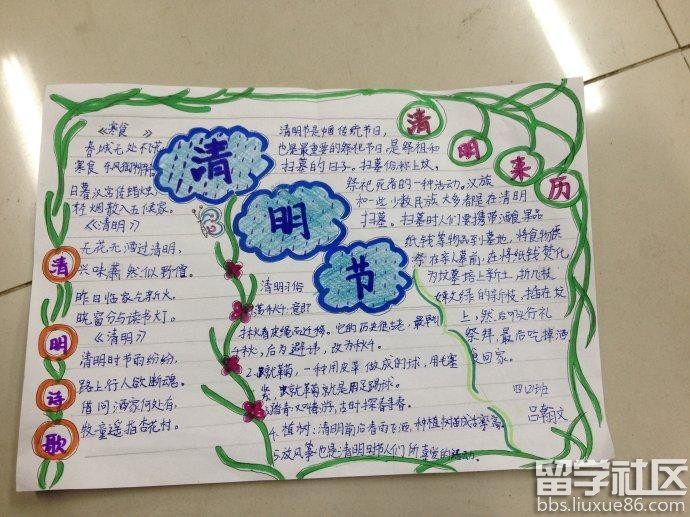 清明节
清明诗歌
《寒食》
春城无处不飞
寒食东风御柳斜
日暮汉宫传蜡烛
轻烟散入五侯家。
《清明》
无花无酒过清明,
兴味萧然似野僧。
昨日临家乞新火,
晓窗分与读书灯。
《清明》
清明时节雨纷纷,
路上行人欲断魂。
借问酒家何处有,
牧童遥指杏花村。
清明来历
清明节是 传统节日,
也是最重要的祭祀节日,是祭祖和
扫墓的日子。扫墓俗称上坟,
祭祀死者的一种活动。汉族
和一些少数民族大多都是在清明
扫墓。扫墓时人们要携带酒食果品
纸钱等物品到墓地,将食物供
祭在亲人墓前,在将纸钱焚化
为坟墓培上新土,折几枝
绿的新枝,插在坟
上,然后叩头行礼
祭拜,最后吃掉酒
食回家。
清明习俗
荡秋千:意即
揪着皮绳而迁移。它的历史很古老,最早叫
千秋,后为避讳,改为秋千。
2. 蹴鞠,一种用皮革做成的球,用毛塞
紧,蹴鞠就是用足踢球。
踏青 古时探春
4. 植树:清明前后春雨飞洒,种植树苗成活率高
5. 放风筝也是清明时节人们所喜爱的活动。
四(2)班
吕翰文
留学社区
bbs.liuxue86.com